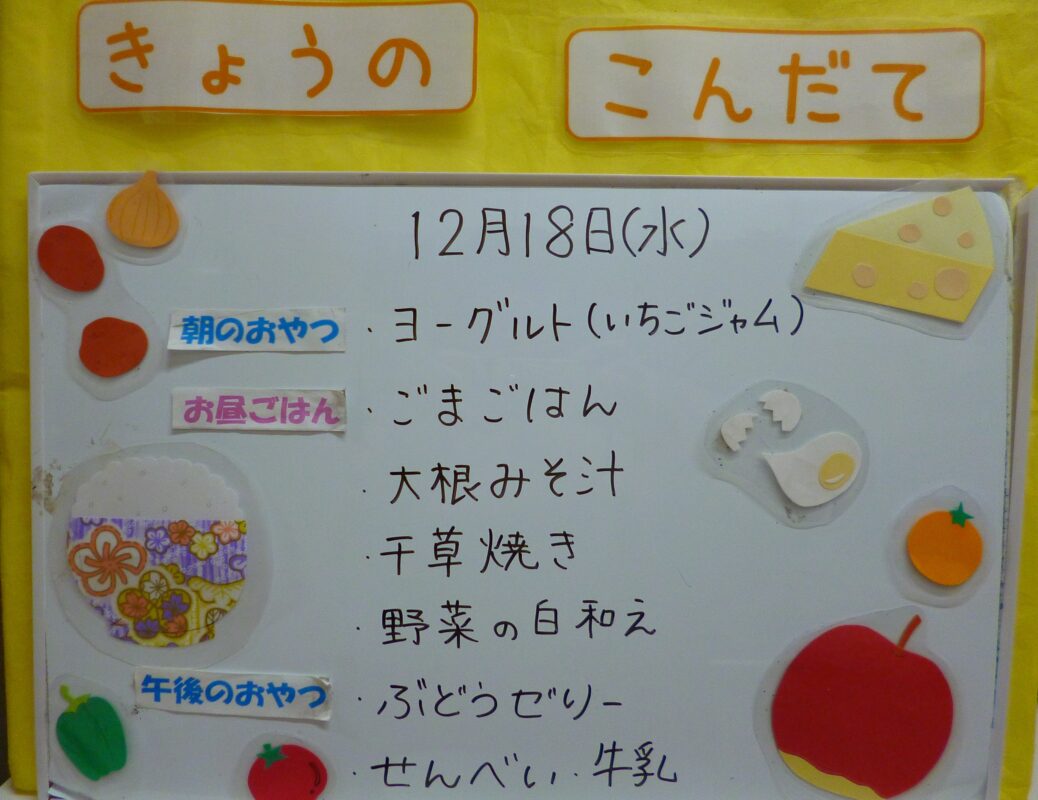 きょうの こんだて
12月18日(水)
朝のおやつ ・ヨーグルト(いちごジャム)
お昼ごはん ・ごまごはん
・大根みそ汁
・千草焼き
・野菜の白和え
午後のおやつ ・ぶどうゼリー
・せんべい・牛乳